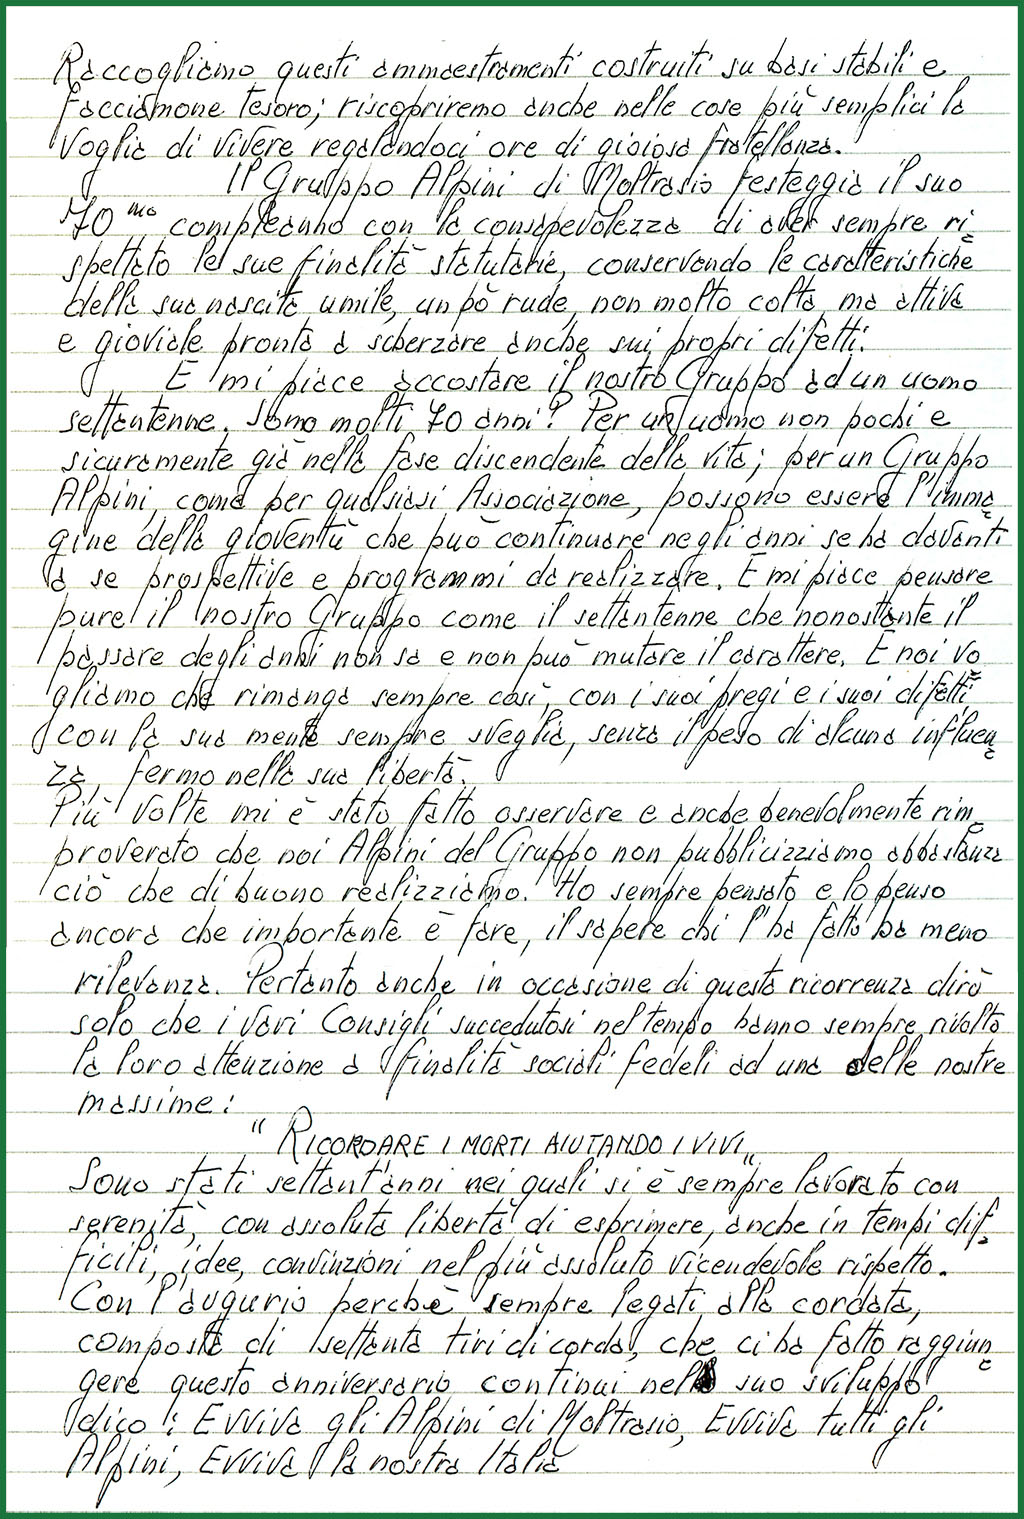 Raccogliamo questi ammaestramenti costruiti su basi stabili e
facciamone tesoro; riscopriremo anche nelle cose più semplici la
voglia di vivere regalandoci ore di gioiosa fratellanza.
Il Gruppo Alpini di Moltrasio festeggia il suo
70mo compleanno con la consapevolezza di aver sempre ri=
spettato le sue finalità statutarie, conservando le caratteristiche
della sua nascita umile, un pò rude, non molto colta, ma attiva
e gioviale pronta a scherzare anche sui propri difetti.
E mi piace accostare il nostro Gruppo ad un uomo
settantenne. Sono molti 70 anni? Per un uomo non pochi e
sicuramente già nella fase discendente della vita; per un Gruppo
Alpini, come per qualsiasi Associazione, possono essere l'imma=
gine della gioventù che può continuare negli anni se ha davanti
a se prospettive e programmi da realizzare. E mi piace pensare
pure il nostro Gruppo come il settantenne che nonostante il
passare degli anni non sa e non può mutare il carattere. E noi vo
gliamo che rimanga sempre così, con i suoi pregi e i suoi difetti,
con la sua mente sempre sveglia, senza il peso di alcuna influen=
za, fermo nella sua libertà.
Più volte mi è stato fatto osservare e anche benevolmente rim=
proverato che noi Alpini del Gruppo non pubblicizziamo abbastanza
ciò che di buono realizziamo. Ho sempre pensato e lo penso
ancora che importante è fare, il sapere chi l'ha fatto ha meno
rilevanza. Pertanto anche in occasione di questa ricorrenza dirò
solo che i vari Consigli succedutosi nel tempo hanno sempre rivolto
la loro attenzione a finalità sociali fedeli ad una delle nostre
massime:
"RICORDARE I MORTI AIUTANDO I VIVI"
Sono stati settant'anni nei quali si è sempre lavorato con
serenità, con assoluta libertà di esprimere, anche in tempi dif=
ficili, idee, convinzioni nel più assoluto vicendevole rispetto.
Con l'augurio perchè sempre legati alla cordata,
composta di settanta tiri di corda, che ci ha fatto raggiun=
gere questo anniversario continui nel suo sviluppo
dico: Evviva gli Alpini di Moltrasio, Evviva tutti gli
Alpini, Evviva la nostra Italia